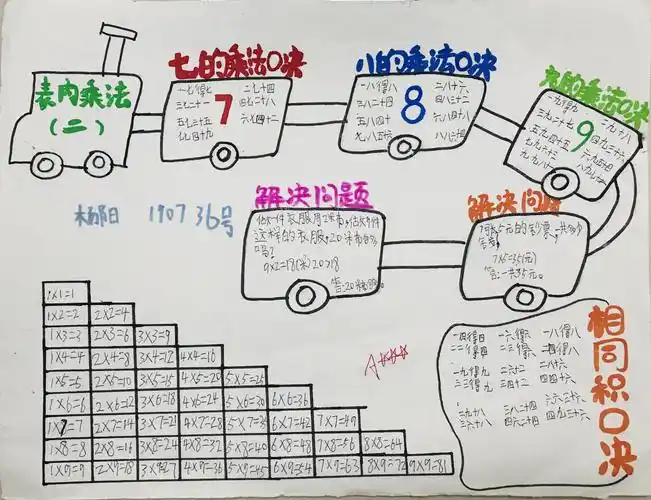 表内乘法
(二)
七的乘法口决
一七得七 二七十四
三七二十一 四七二十八
五七三十五 六七四十二
七七四十九
7
八的乘法口决
一八得八 二八十六
三八二十四 四八三十二
五八四十 六八四十八
七八五十六 八八六十四
8
九的乘法口决
一九得九 二九十八
三九二十七 四九三十六
五九四十五 六九五十四
七九六十三 八九七十二
九九八十一
9
1907 36号
解决问题
这样的衣服,20米布够
吗?
9×2=18(米) 20>18
解决问题
7×5=35(元)
答:一共35元。
相同积口决
一四得四 一六得六 一八得八
二二得四 二三得六 二四得八
一九得九 二六十二 二八十六
三三得九 三四十二 四四十六
二九十八 三八二十四 六六三十六
三六十八 四六二十四 四九三十六
A
1×1=1
1×2=2 2×2=4
1×3=3 2×3=6 3×3=9
1×4=4 2×4=8 3×4=12 4×4=16
1×5=5 2×5=10 3×5=15 4×5=20 5×5=25
1×6=6 2×6=12 3×6=18 4×6=24 5×6=30 6×6=36
1×7=7 2×7=14 3×7=21 4×7=28 5×7=35 6×7=42 7×7=49
1×8=8 2×8=16 3×8=24 4×8=32 5×8=40 6×8=48 7×8=56 8×8=64
1×9=9 2×9=18 3×9=27 4×9=36 5×9=45 6×9=54 7×9=63 8×9=72 9×9=81